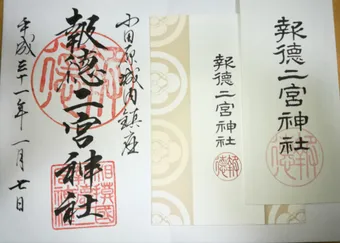 小田原城内鎮座
報徳二宮神社
平成三十一年一月七日
報徳二宮神社
報徳
報徳二宮神社
報徳